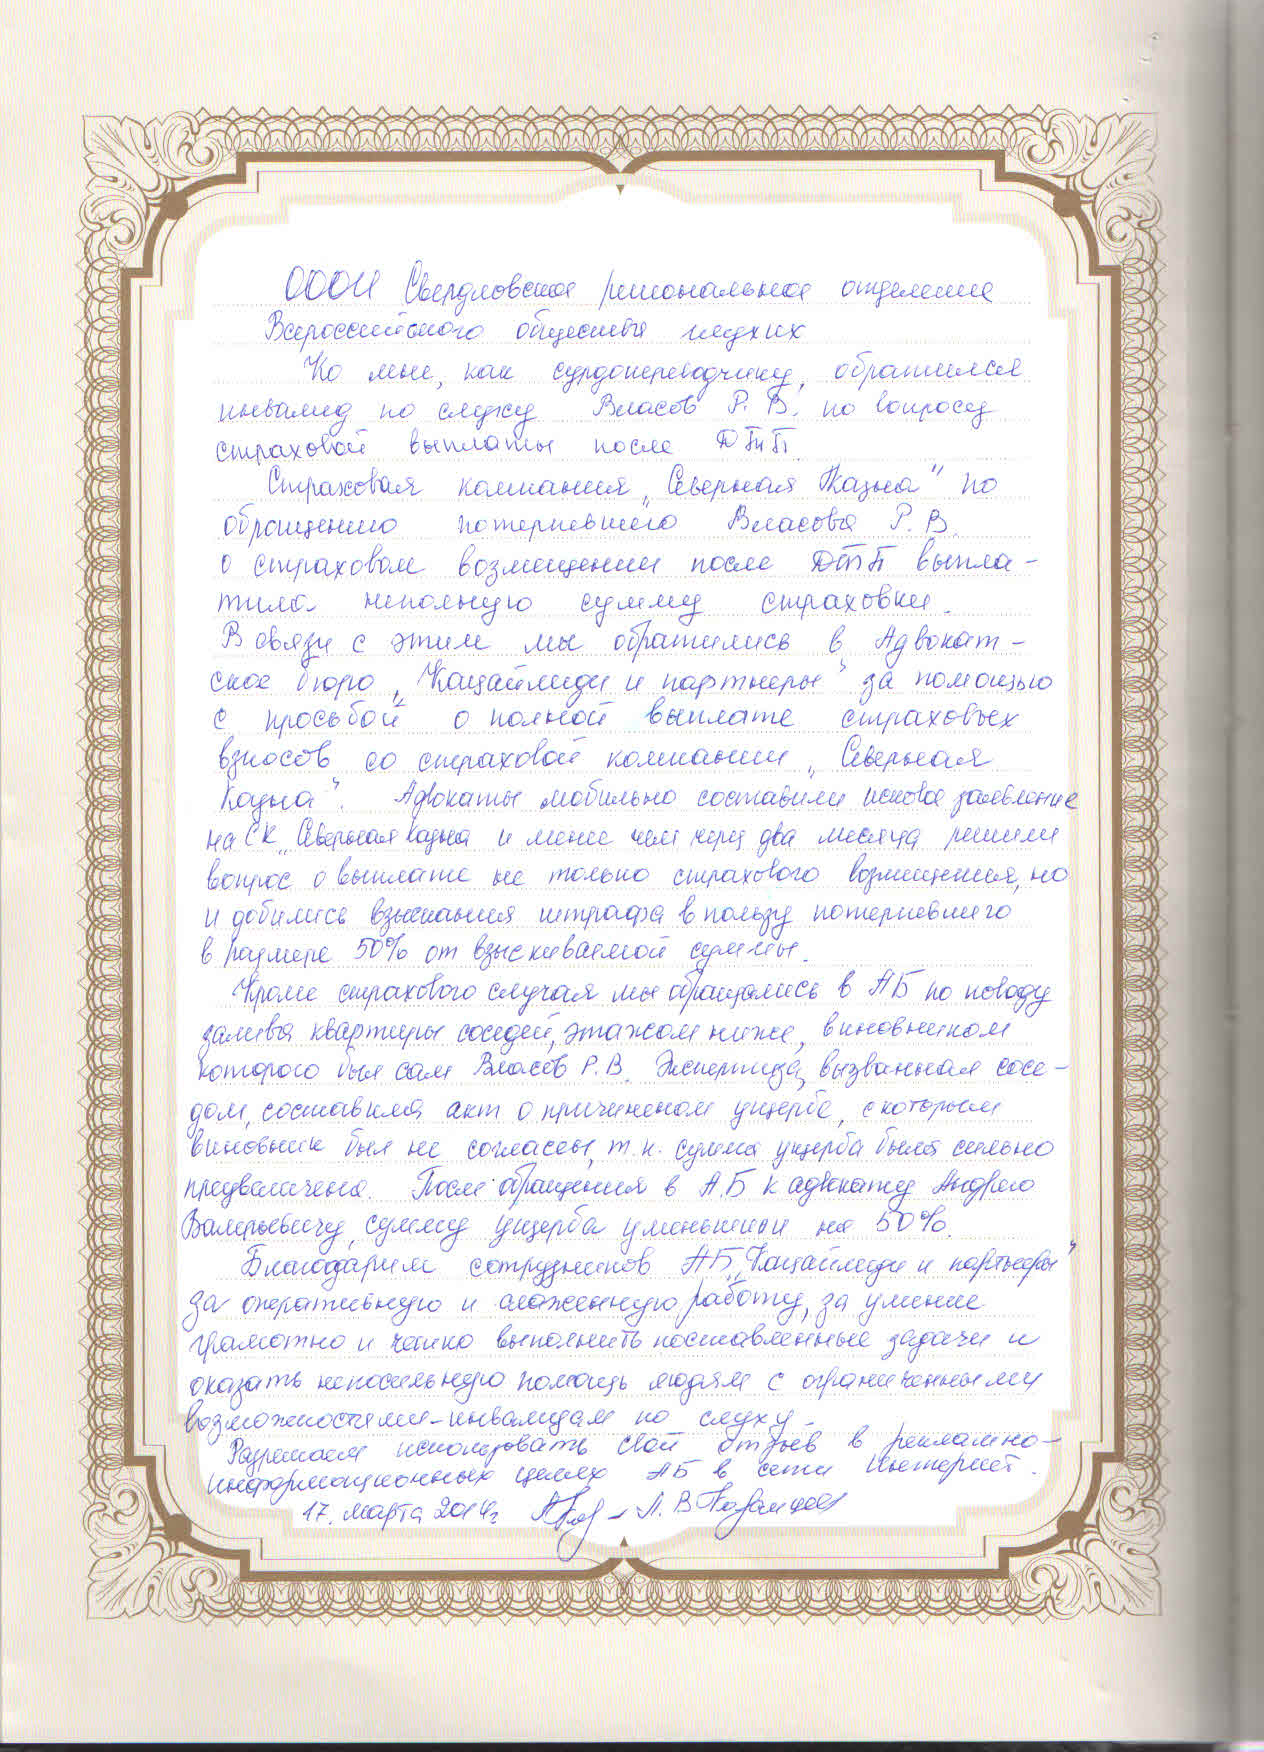 ОООИ Свердловское региональное отделение
Всероссийского общества глухих
Ко мне, как сурдопереводчику, обратился
инвалид по слуху Власов Р. В. по вопросу
страховой выплаты после ДТП.
Страховая компания „Северная Казна" по
обращению потерпевшего Власова Р. В.
о страховом возмещении после ДТП выпла-
тила неполную сумму страховки.
В связи с этим мы обратились в Адвокат-
ское бюро „Кацайлиди и партнеры" за помощью
с просьбой о полной выплате страховых
взносов со страховой компании „Северная
Казна". Адвокаты мобильно составили исковое заявление
на СК „Северная казна и менее чем через два месяца решили
вопрос о выплате не только страхового возмещения, но
и добились взыскания штрафа в пользу потерпевшего
в размере 50% от взыскиваемой суммы.
Кроме страхового случая мы обращались в АБ по поводу
залива квартиры соседей, этажом ниже, виновником
которого был сам Власов Р. В. Экспертиза, вызванная сосе-
дом, составила акт о причиненом ущербе, с которым
виновник был не согласен, т. к. сумма ущерба была сильно
предвеличена. После обращения в А.Б к адвокату Андрею
Валерьевичу, сумму ущерба уменьшили на 50%.
Благодарим сотрудников АБ „Кацайлиди и партнеры"
за оперативную и слаженную работу, за умение
грамотно и четко выполнить поставленные задачи и
оказать непосильную помощь людям с ограниченными
возможностями-инвалидам по слуху.
Разрешаем использовать свой отзыв в рекламно-
информационных целях АБ в сети Интернет.
17. марта 2014г. Л. В